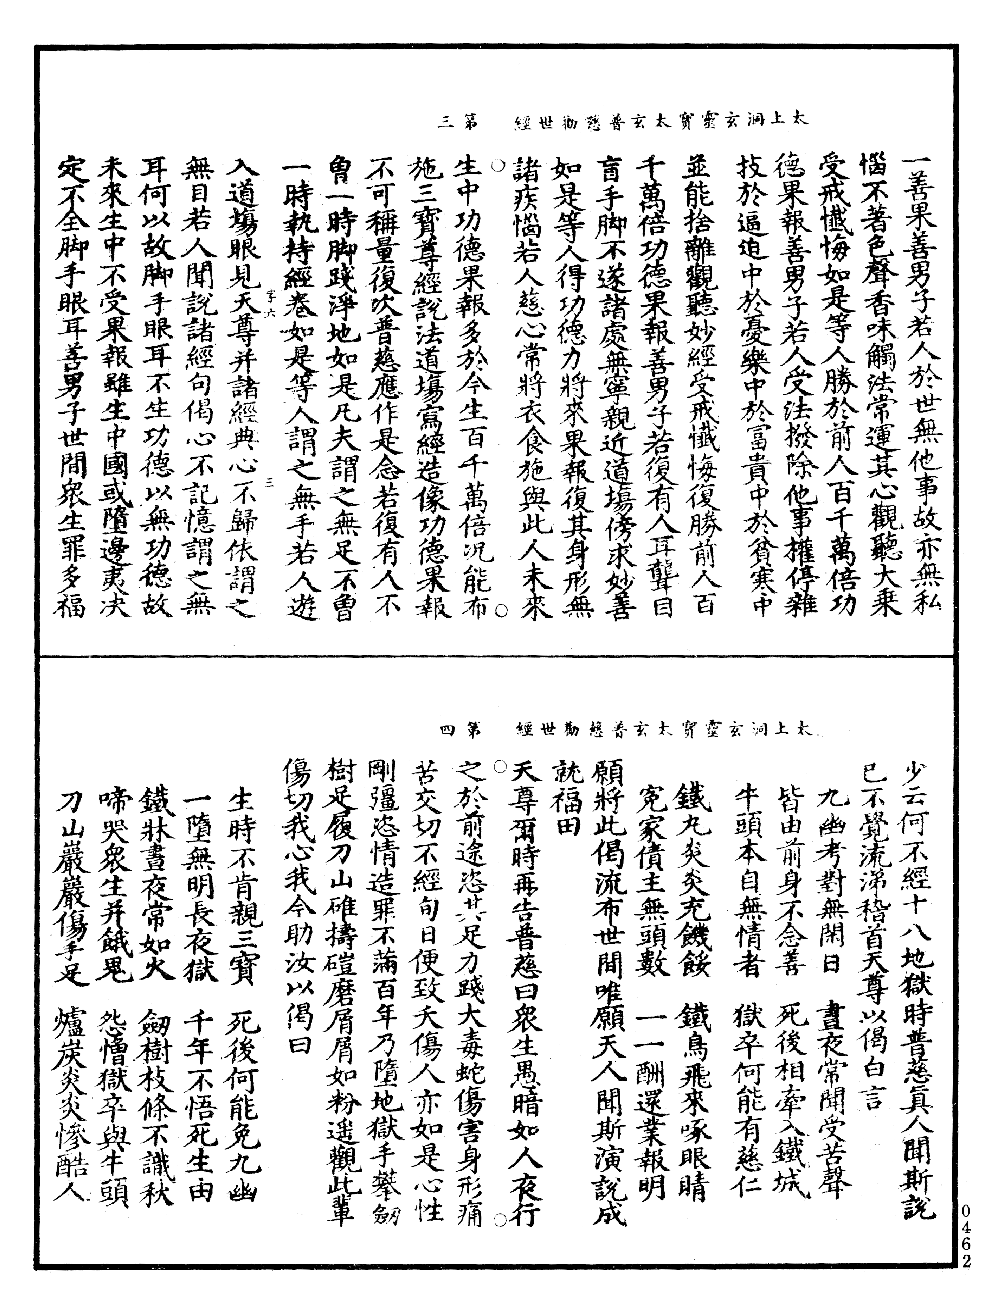 太上洞玄靈寶太玄普慈勸世經　第三
一善果善男子若人於世無他事故亦無私
惱不著色聲香味觸法常運其心觀聽大乘
受戒懺悔如是等人勝於前人百千萬倍功
德果報善男子若人受法撥除他事權停雜
技於逼迫中於憂樂中於富貴中於貧寒中
並能捨離觀聽妙經受戒懺悔復勝前人百
千萬倍功德果報善男子若復有人耳聾目
盲手脚不遂諸處無寧親近道塲傍求妙善
如是等人得功德力將來果報復其身形無
諸疾惱若人慈心常將衣食施與此人未來
生中功德果報多於今生百千萬倍况能布
施三寶尊經說法道塲寫經造像功德果報
不可稱量復次普慈應作是念若復有人不
曾一時脚踐淨地如是凡夫謂之無足不曾
一時執持經卷如是等人謂之無手若人遊
字六　三
入道塲眼見天尊并諸經典心不歸依謂之
無目若人聞說諸經句偈心不記憶謂之無
耳何以故脚手眼耳不生功德以無功德故
未來生中不受果報雖生中國或墮邊夷决
定不全脚手眼耳善男子世間衆生罪多福
太上洞玄靈寶太玄普慈勸世經　第四
少云何不經十八地獄時普慈眞人聞斯說
已不覺流涕稽首天尊以偈白言
九幽考對無閑日　晝夜常聞受苦聲
皆由前身不念善　死後相牽入鐵城
牛頭本自無情者　獄卒何能有慈仁
鐵丸炎炎充饑餧　鐵鳥飛來啄眼睛
寃家債主無頭數　一一酬還業報明
願將此偈流布世間唯願天人聞斯演說成
就福田
天尊爾時再告普慈曰衆生愚暗如人夜行
之於前途恣其足力踐大毒蛇傷害身形痛
苦交切不經旬日便致夭傷人亦如是心性
剛彊恣情造罪不滿百年乃墮地獄手攀劒
樹足履刀山碓擣磑磨屑屑如粉遥觀此輩
傷切我心我今助汝以偈曰
生時不肯親三寶　死後何能免九幽
一墮無明長夜獄　千年不悟死生由
鐵牀晝夜常如火　劒樹枝條不識秋
啼哭衆生并餓鬼　怨憎獄卒與牛頭
刀山巖巖傷手足　爐炭炎炎慘酷人
0462